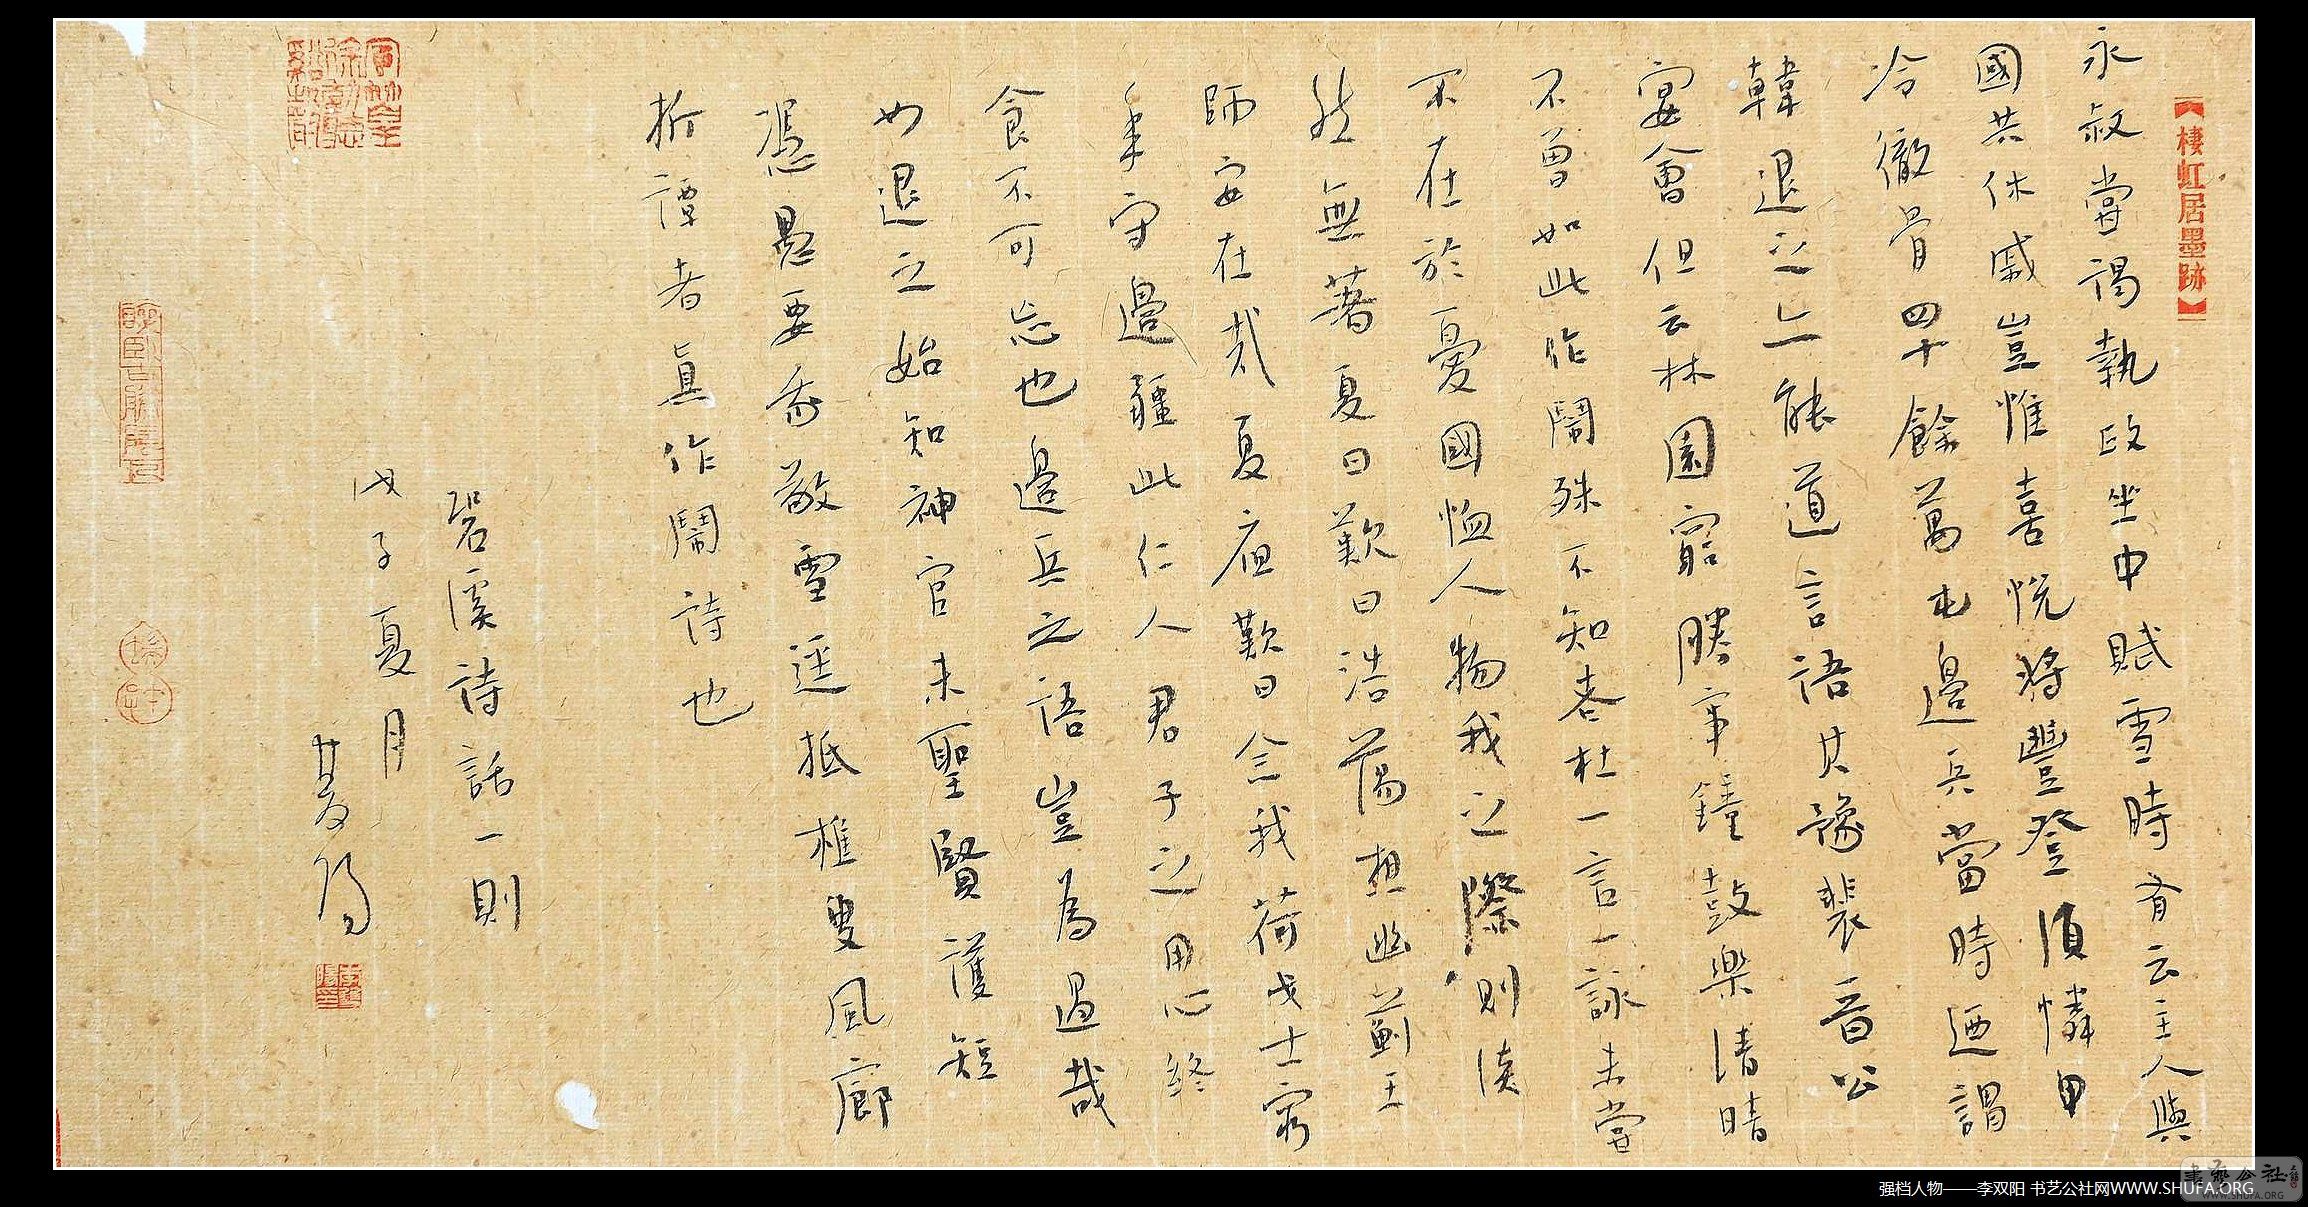 【棲虹居墨跡】
永叔嘗謁執政坐中賦雪時有云主人與
國共休戚豈惟喜悅將豐登須憐甲
冷徹骨四十餘萬屯邊兵當時迺謂
韓退之亦能道言語其豫裴晉公
宴會但云林園窮勝事鐘鼓樂清晴
不曾如此作鬧殊不知老杜一言一詠未嘗
不在於憂國恤人物我之際則淡
然無著夏日歎曰浩蕩想幽薊王
師安在哉夏夜歎曰念我荷戈士窮
年守邊疆此仁人君子之用心終
食不可忘也邊兵之語豈為過哉
如退之始知神官未聖賢護短
憑愚要我敬雪逕抵樵叟風廊
折譚者真作鬧詩也
碧溪詩話一則
戊子夏月
强档人物——李双阳 书艺公社网WWW.SHUFA.ORG
書藝公社
WWW.SHUFA.ORG